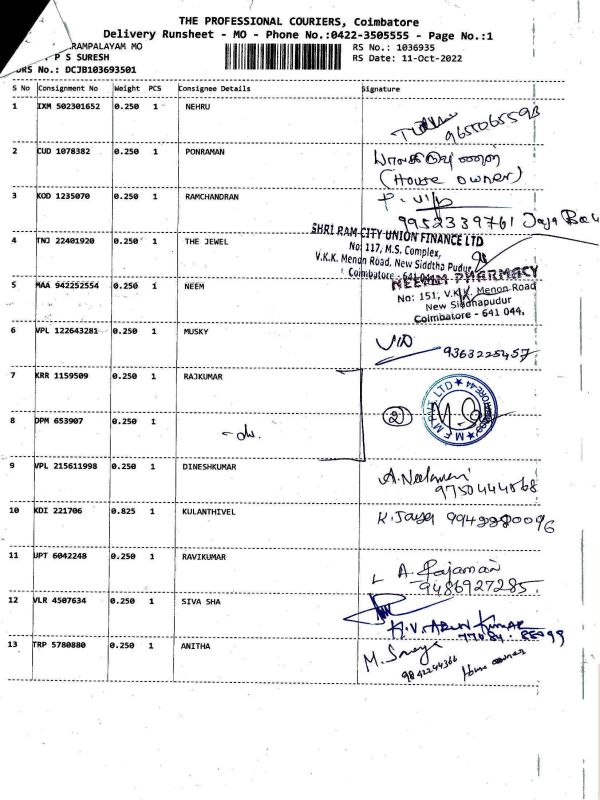 THE PROFESSIONAL COURIERS, Coimbatore
Delivery Runsheet - MO - Phone No.:0422-3505555 - Page No.:1
RAMPALAYAM MO RS No.: 1036935
P S SURESH RS Date: 11-Oct-2022
DRS No.: DCJB103693501
S No Consignment No Weight PCS Consignee Details Signature
1 IXM 502301652 0.250 1 NEHRU
9655065593
2 CUD 1078382 0.250 1 PONRAMAN
(House owner)
3 KOD 1235070 0.250 1 RAMCHANDRAN
9952339761 Jaya
SHRI RAM CITY UNION FINANCE LTD
No: 117, M.S. Complex,
4 TNJ 22401920 0.250 1 THE JEWEL
V.K.K. Menon Road, New Siddtha Pudur,
Coimbatore - 641 044
5 MAA 942252554 0.250 1 NEEM
NEEMM PHARMACY
No: 151, V.K.K. Menon Road
New Siddhapudur
Coimbatore - 641 044.
6 VPL 122643281 0.250 1 MUSKY
9363225457
7 KRR 1159509 0.250 1 RAJKUMAR
8 DPM 653907 0.250 1
- do.
2
9 VPL 215611998 0.250 1 DINESHKUMAR
A. Neelaveni
9750444868
10 KDI 221706 0.825 1 KULANTHIVEL
K. Jaya 9942280096
11 UPT 6042248 0.250 1 RAVIKUMAR
A. Rajaman
9486927285.
12 VLR 4507634 0.250 1 SIVA SHA
K.V. ARUN KUMAR
13 TRP 5780880 0.250 1 ANITHA
M. Saraya
9842244366 House owner